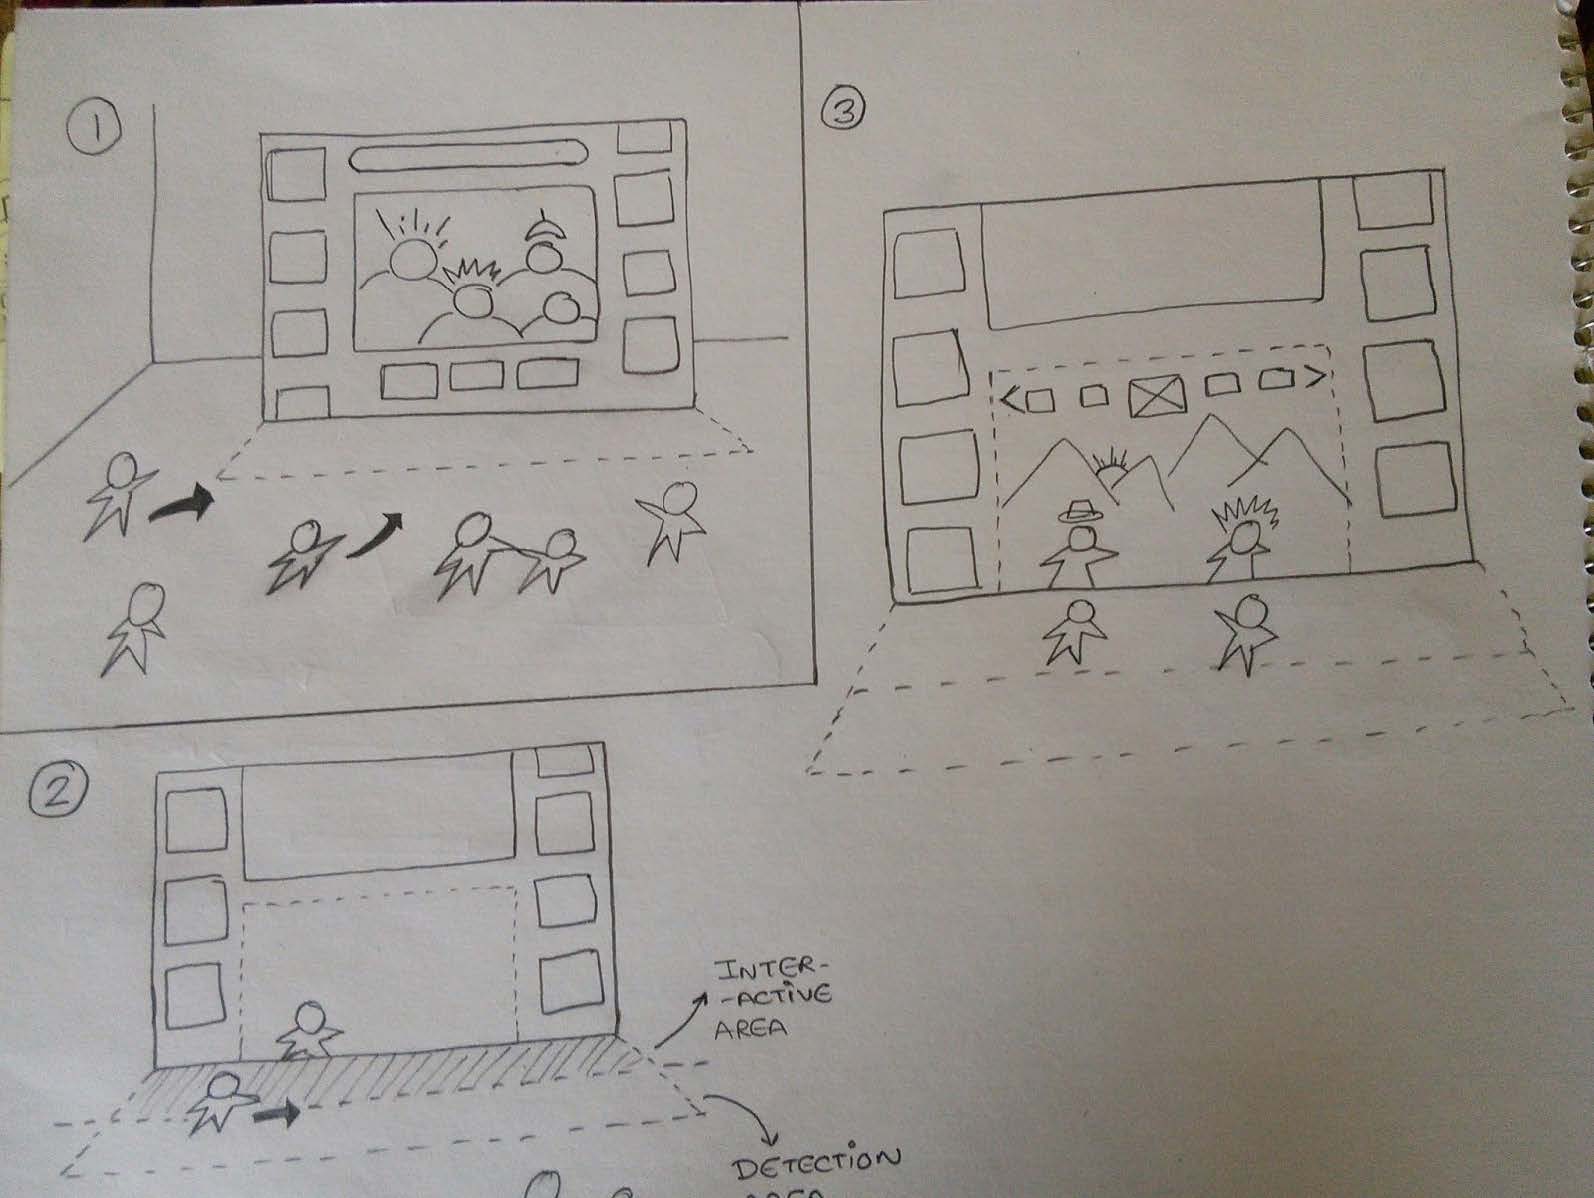 1
3
2
INTER-
-ACTIVE
AREA
DETECTION
AREA